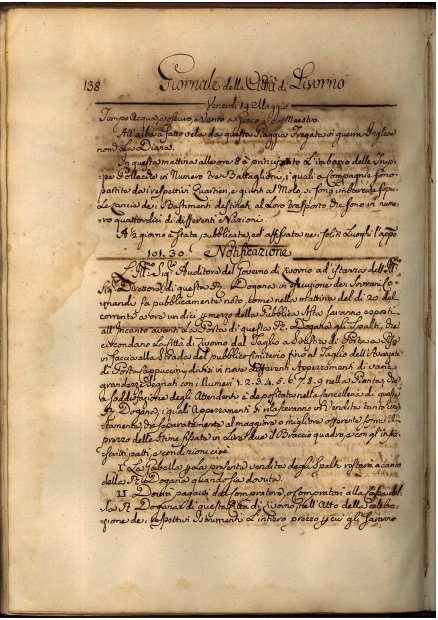 138 Giornale della Città di Livorno
Venerdì 14 Maggio
Tempo Acquoso, e scuro, e Vento a Greco, e da Maestro.
All'alba à fatto vela da questa Spiaggia Fregata in guerra Inglese
nom.a La Diana.
In questa mattina alle ore 8 è principiato L'imbarco delle Trup-
pe Pollacche in Numero tre Battaglioni, i quali a Compagnie sono
partite dai rispettivi Quartieri, e giunti al Molo, si sono imbarcate sopra
Le Lancie dei Bastimenti destinati al Loro trasporto che sono in nume-
ro quattordici di differenti Nazioni.
A ½ giorno è stata pubblicata, ed affissata nei soliti Luoghi l'app.
101.30. Notificazione
L'Ill.mo Sig.re Auditore del Governo di Livorno ad istanza dell'Ill.mo
Sig.re Direttore di questa R. Dogana in esecuzione dei Sovrani Co-
mandi fa pubblicamente noto, come nella mattina del dì 20 del
corrente a ore undici e mezzo della Pubblica Asta saranno esposti
all'Incanto avanti La Porta di questa R. Dogana gli Spalti, che
circondano La Città di Livorno dal Taglio a Sinistra di Porta a Pisa
in faccia alla Strada del pubblico Cimiterio fino al Taglio dell'Avanzata
di Porta Cappuccini divisi in nove differenti Appezzamenti di varie
grandezze segnati con i Numeri 1. 2. 3. 4. 5. 6. 7. 8. 9 nella Pianta, che
a soddisfazione degli Attendenti è depositata nella Cancelleria di questa
R. Dogana, i quali Appezzamenti si rilasceranno in Vendita tanto unita-
mente, che separatamente al maggiore, o migliore offerente sopra il
prezzo delle Stime fissata in Lire due il Braccio quadro, e con gl'infra-
scritti patti, e condizioni cioè
I. La Gabella per La presente vendita degli Spalti resterà a carico
della R. Dogana quando sia dovuta.
II. Dovrà pagarsi dal Compratore, o Compratori alla Cassa del-
la R. Dogana di questa Città di Livorno, nell'Atto della celebra-
zione dei respettivi Istrumenti L'intero prezzo per cui gli saranno